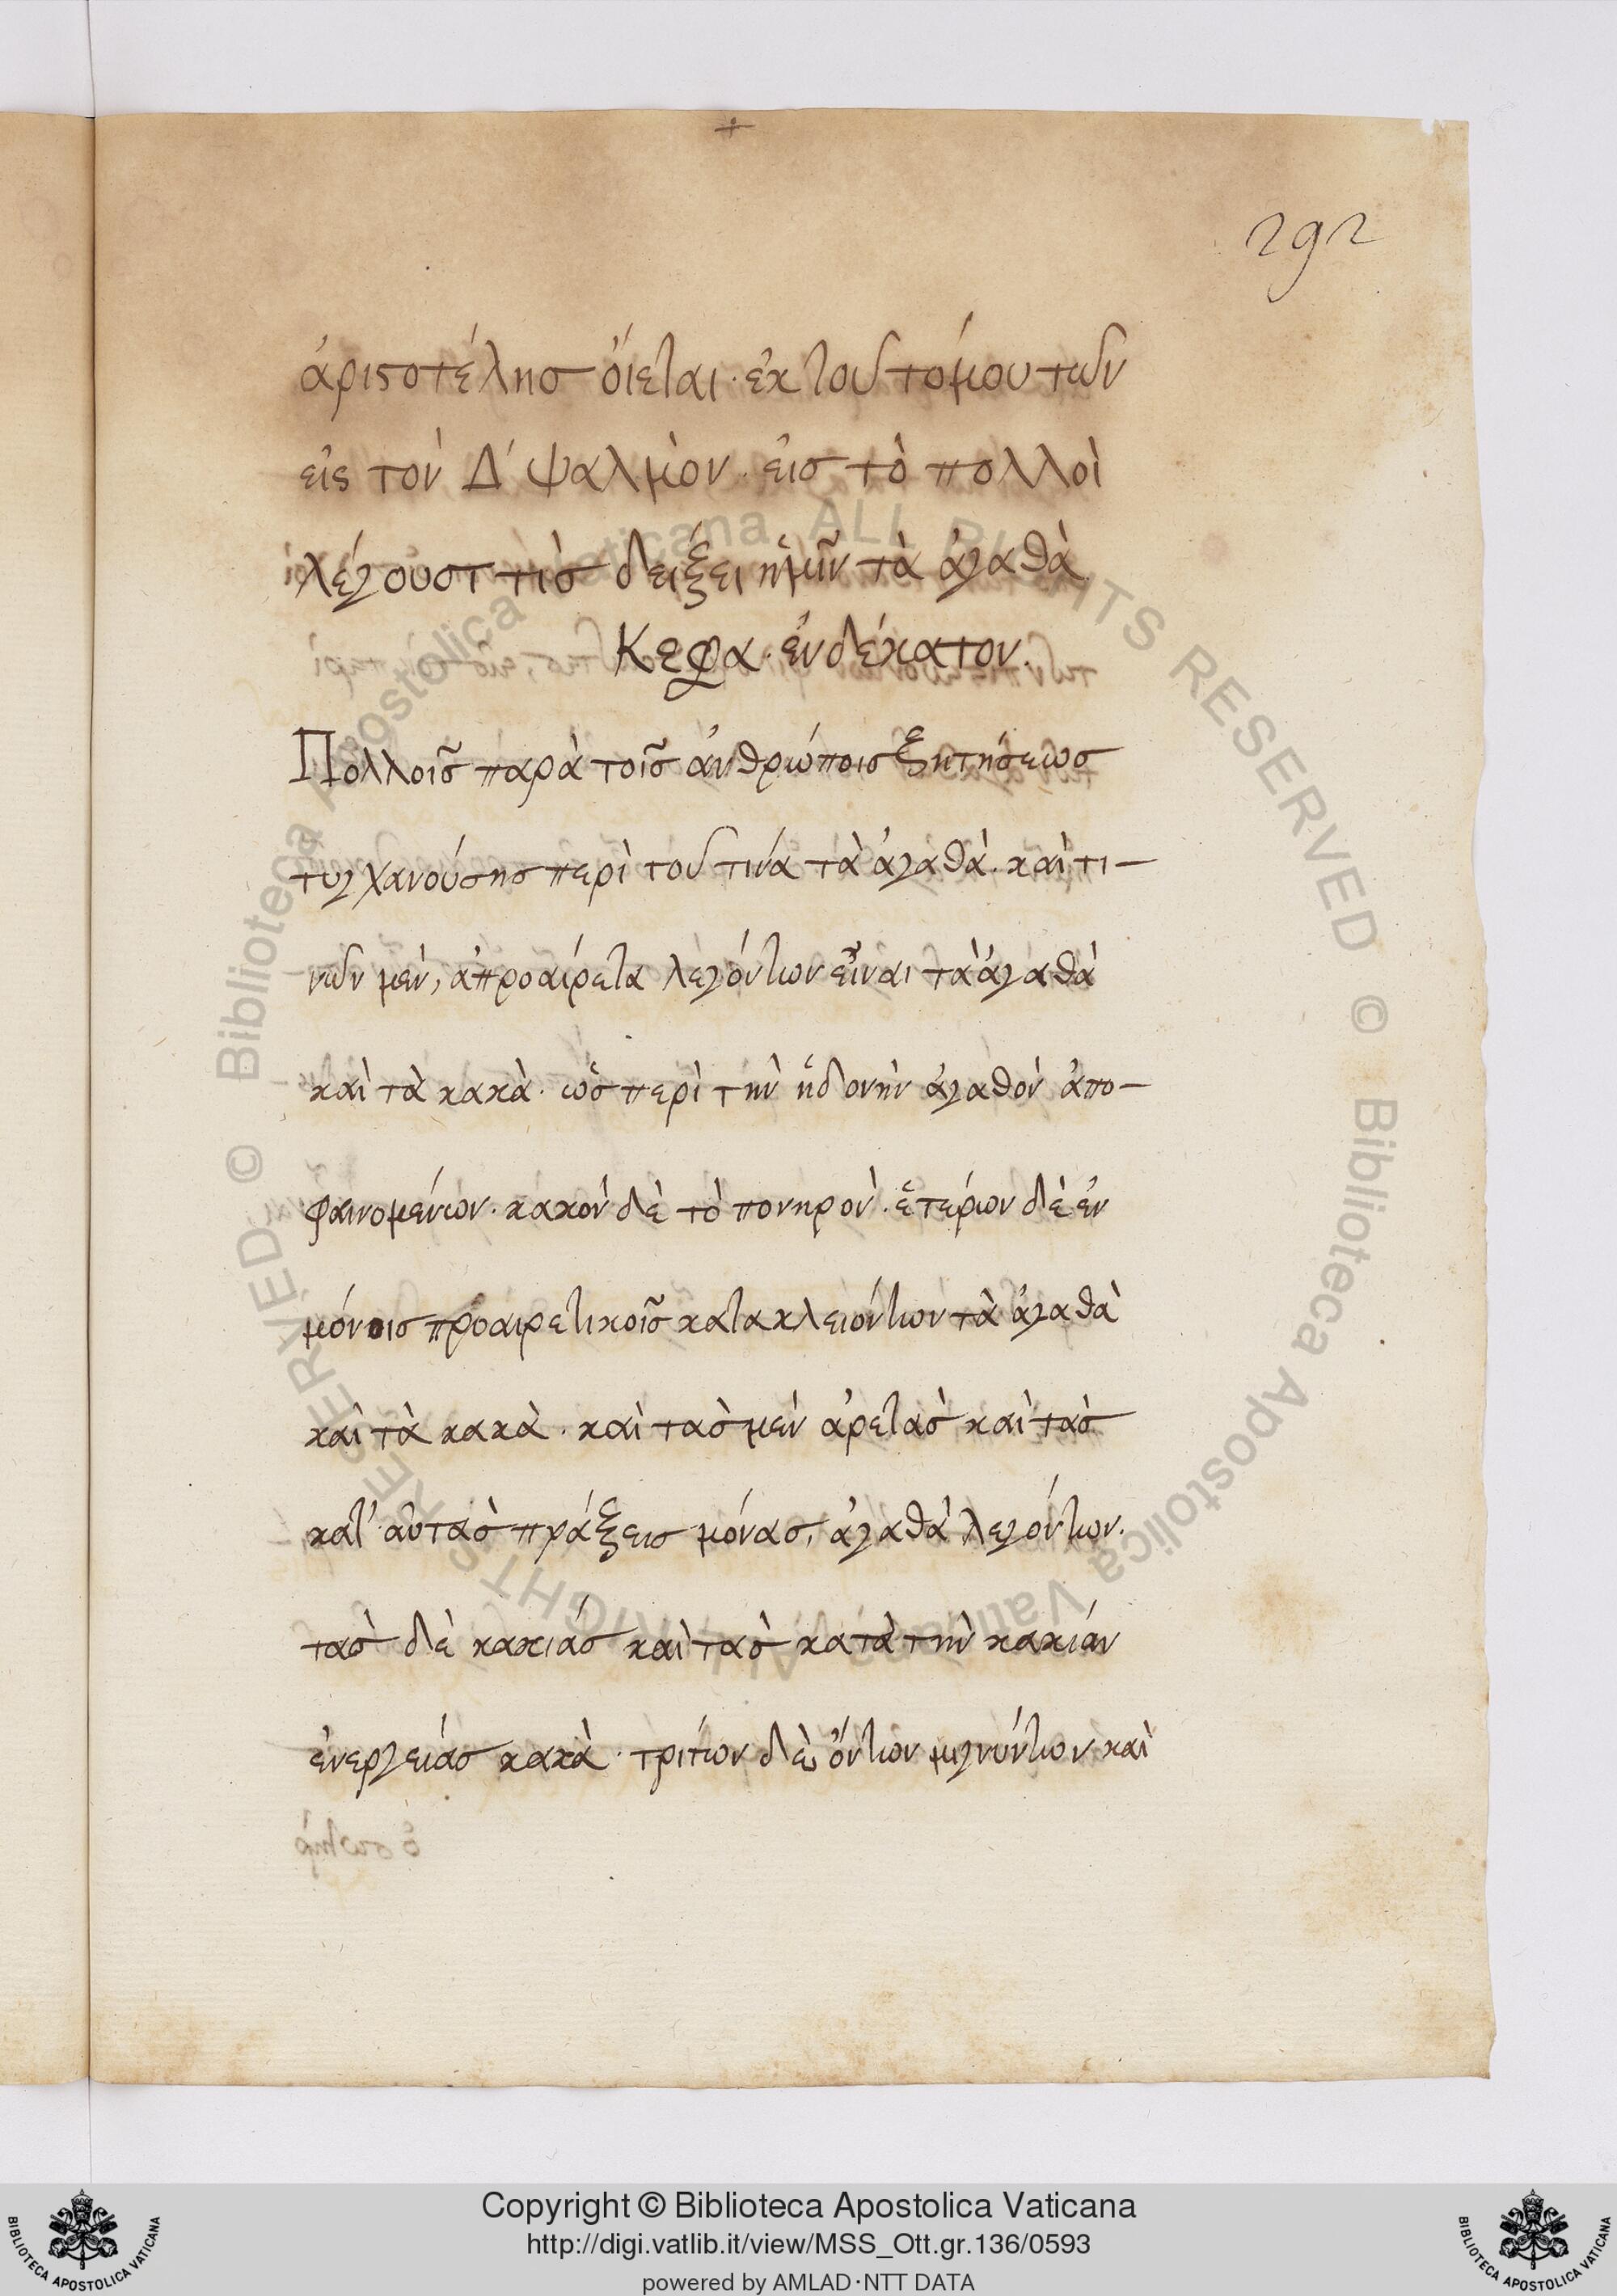 292
ἀριστοτέλησ ὄιεται · ἐκ τοῦ τόμου των
εἰς τὸν Δ΄ ψαλμὸν · εἰσ τὸ πολλοὶ
λέγουσι τὶσ δείξει ἡμῖν τὰ ἀγαθὰ
Κεφα · ἑνδέκατον.
Πολλοῖσ παρὰ τοῖσ ἀνθρώποισ ξητήσεωσ
τυγχανούσησ περὶ τοῦ τινά τὰ ἀγαθὰ. καὶ τι-
νῶν μὲν, ἀπροαίρετα λεγόντων εἶναι τὰ ἀγαθὰ
καὶ τὰ κακὰ · ὥσ περὶ τὴν ἡδονὴν ἀγαθὸν ἀπο-
φαινομένων. κακὸν δὲ τὸ πονηρὸν · ἑτέρων δὲ ἐν
μόνοισ προαιρετικοῖσ κατακλειόντων τὰ ἀγαθὰ
καὶ τὰ κακὰ · καὶ τὰσ μὲν ἀρετὰσ καὶ τὰσ
κατ' αὐτὰσ πράξεισ μόνασ, ἀγαθὰ λεγόντων.
τὰσ δὲ κακιάσ καὶ τὰσ κατὰ τὴν κακιάν
ἐνεργειάσ κακὰ · τρίτων δὲ ὄντων μιγνύντων καὶ
Copyright © Biblioteca Apostolica Vaticana
http://digi.vatlib.it/view/MSS_Ott.gr.136/0593
powered by AMLAD·NTT DATA
BIBLIOTECA APOSTOLICA VATICANA
BIBLIOTECA APOSTOLICA VATICANA
© Biblioteca Apostolica Vaticana ALL RIGHTS RESERVED © Biblioteca Apostolica Vaticana ALL RIGHTS RESERVED